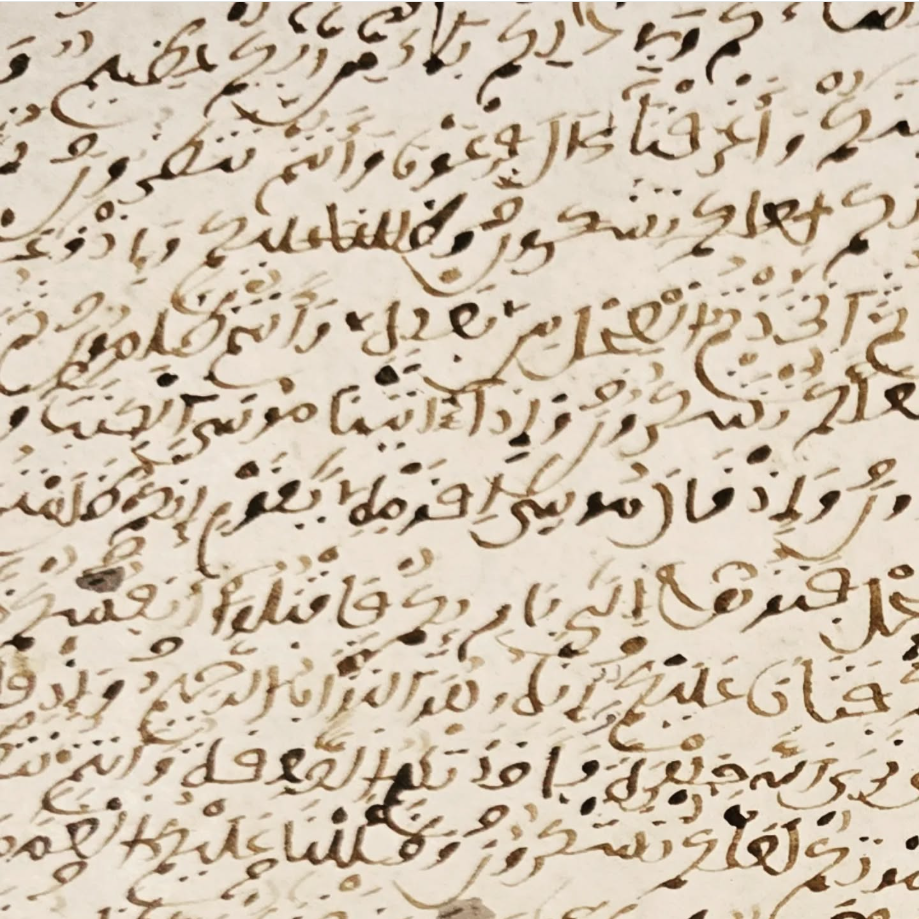 وفي ذلكم بلاء من ربكم عظيم و
وأغرقنا ءال فرعون وأنتم تنظرون
لعلكم تشكرون وظللنا عليكم
ثم اتخذتم العجل من بعده وأنتم ظلمون ثم
لعلكم تشكرون وإذ ءاتينا موسى الكتب و
ون وإذ قال موسى لقومه يقوم إنكم ظلمتم
جل فتوبوا إلى بارئكم فاقتلوا أنفسكم
فتاب عليكم إنه هو التواب الرحيم وإذ
نرى الله جهرة فأخذتكم الصعقة وأنتم
موتكم لعلكم تشكرون وظللنا عليكم الغمم